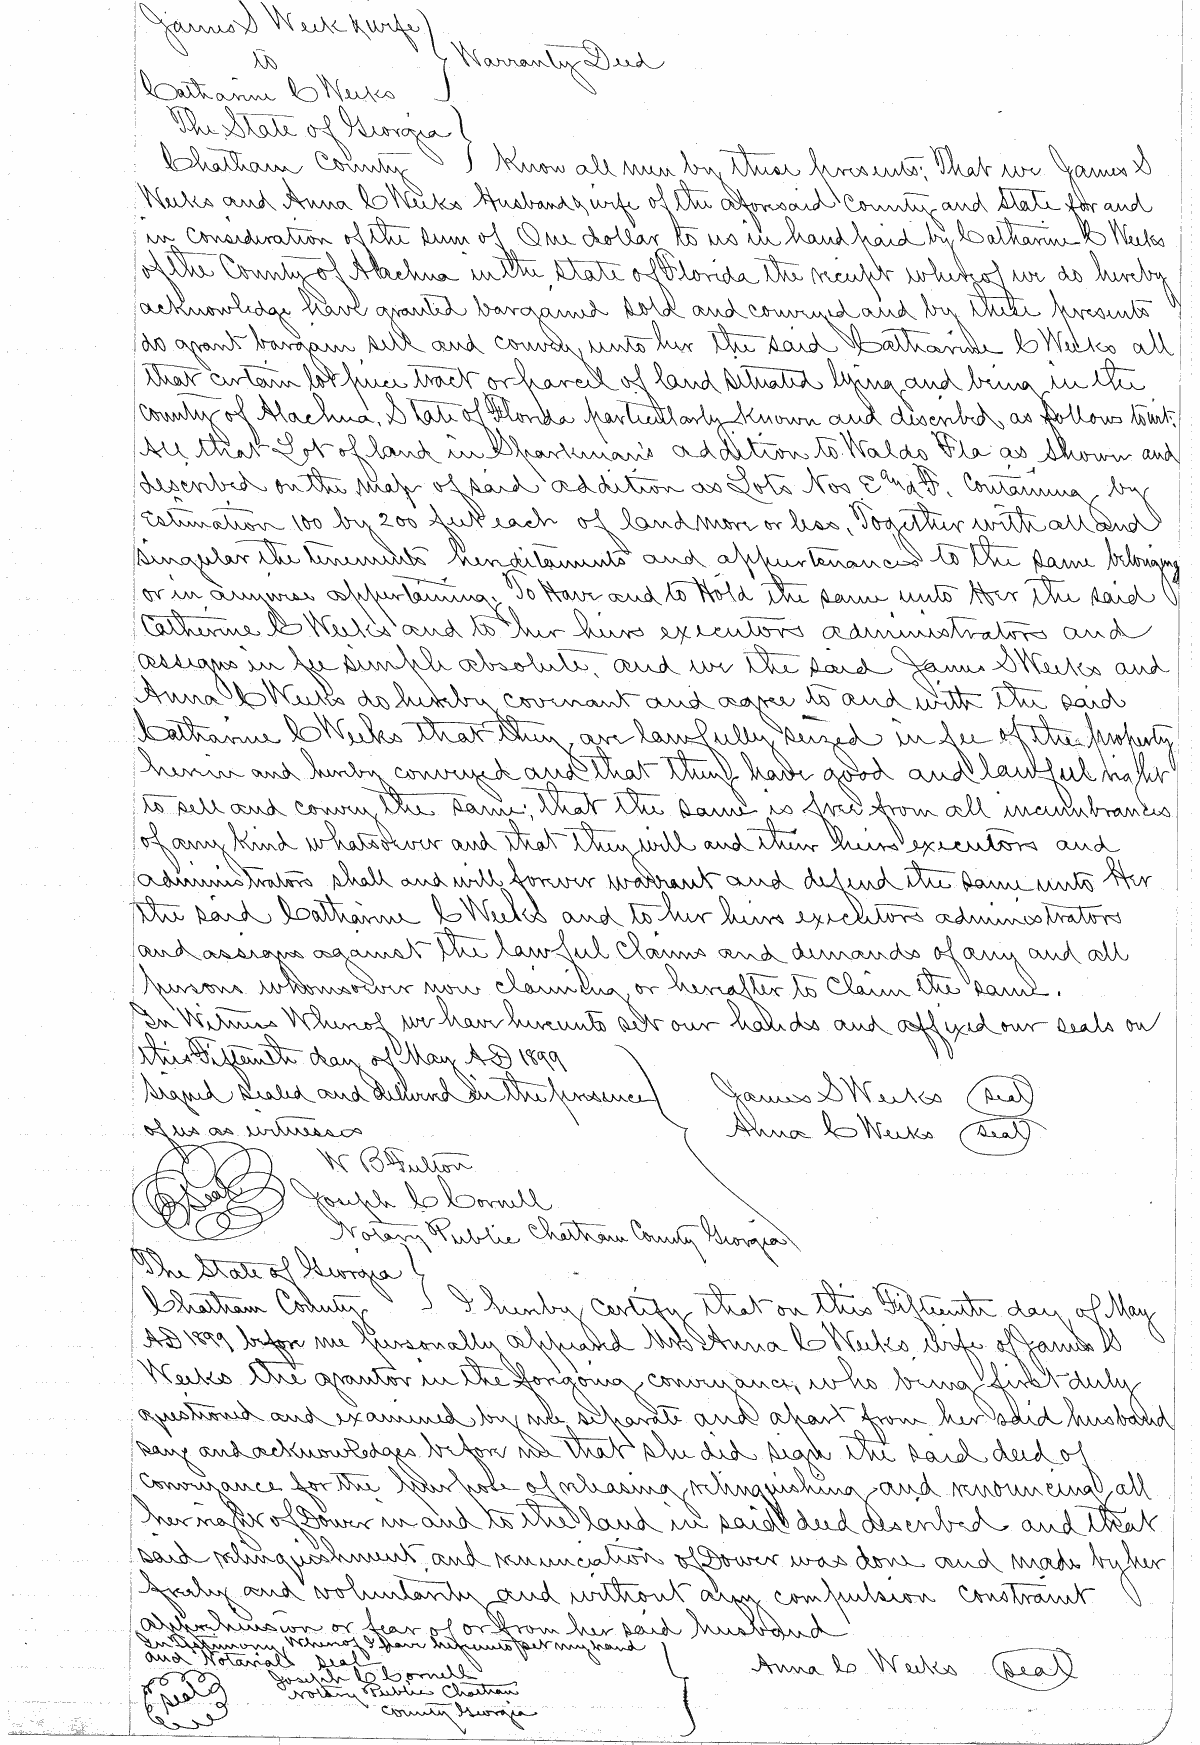 James S Week & wife
to
Warranty Deed
Catharine C Weeks
The State of Georgia
Chatham County Know all men by these presents; That we James S
Weeks and Anna C Weeks Husband & wife of the aforesaid County and State for and
in consideration of the sum of One dollar to us in hand paid by Catharine C Weeks
of the County of Alachua in the State of Florida the receipt whereof we do hereby
acknowledge have granted bargained sold and conveyed and by these presents
do grant bargain sell and convey unto her the said Catharine C Weeks all
that certain lot piece tract or parcel of land situated lying and being in the
county of Alachua, State of Florida particularly known and described as follows towit:
All that Lot of land in Sparkman's addition to Waldo Fla as shown and
described on the map of said addition as Lots Nos E and F. Containing by
Estimation 100 by 200 feet each of land more or less, Together with all and
singular the tenements hereditaments and appurtenances to the same belonging
or in anywise appertaining. To Have and to Hold the same unto Her the said
Catherine C Weeks and to her heirs executors administrators and
assigns in fee simple absolute, and we the said James S Weeks and
Anna C Weeks do hereby covenant and agree to and with the said
Catharine C Weeks that they are lawfully seized in fee of the property
herein and hereby conveyed and that they have good and lawful right
to sell and convey the same; that the same is free from all incumbrances
of any kind whatsoever and that they will and their heirs executors and
administrators shall and will forever warrant and defend the same unto Her
the said Catharine C Weeks and to her heirs executors administrators
and assigns against the lawful claims and demands of any and all
persons whomsoever now claiming or hereafter to claim the same.
In Witness Whereof we have hereunto set our hands and affixed our seals on
this Fifteenth day of May AD 1899
Signed sealed and delivered in the presence James S Weeks seal
of us as witnesses Anna C Weeks seal
W B Fulton
seal Joseph C Cornell
Notary Public Chatham County Georgia
The State of Georgia
Chatham County I hereby certify that on this Fifteenth day of May
AD 1899 before me personally appeared Mrs Anna C Weeks wife of James S
Weeks the grantor in the forgoing conveyance, who being first duly
questioned and examined by me separate and apart from her said husband
say and acknowledges before me that she did sign the said deed of
conveyance for the purpose of releasing relinquishing and renouncing all
her right of Dower in and to the land in said deed described and that
said relinquishment and renunciation of Dower was done and made by her
freely and voluntarily and without any compulsion constraint
apprehension or fear of or from her said husband
In Testimony Whereof I have hereunto set my hand
and Notarial seal Anna C Weeks seal
Joseph C Cornell
seal Notary Public Chatham
County Georgia